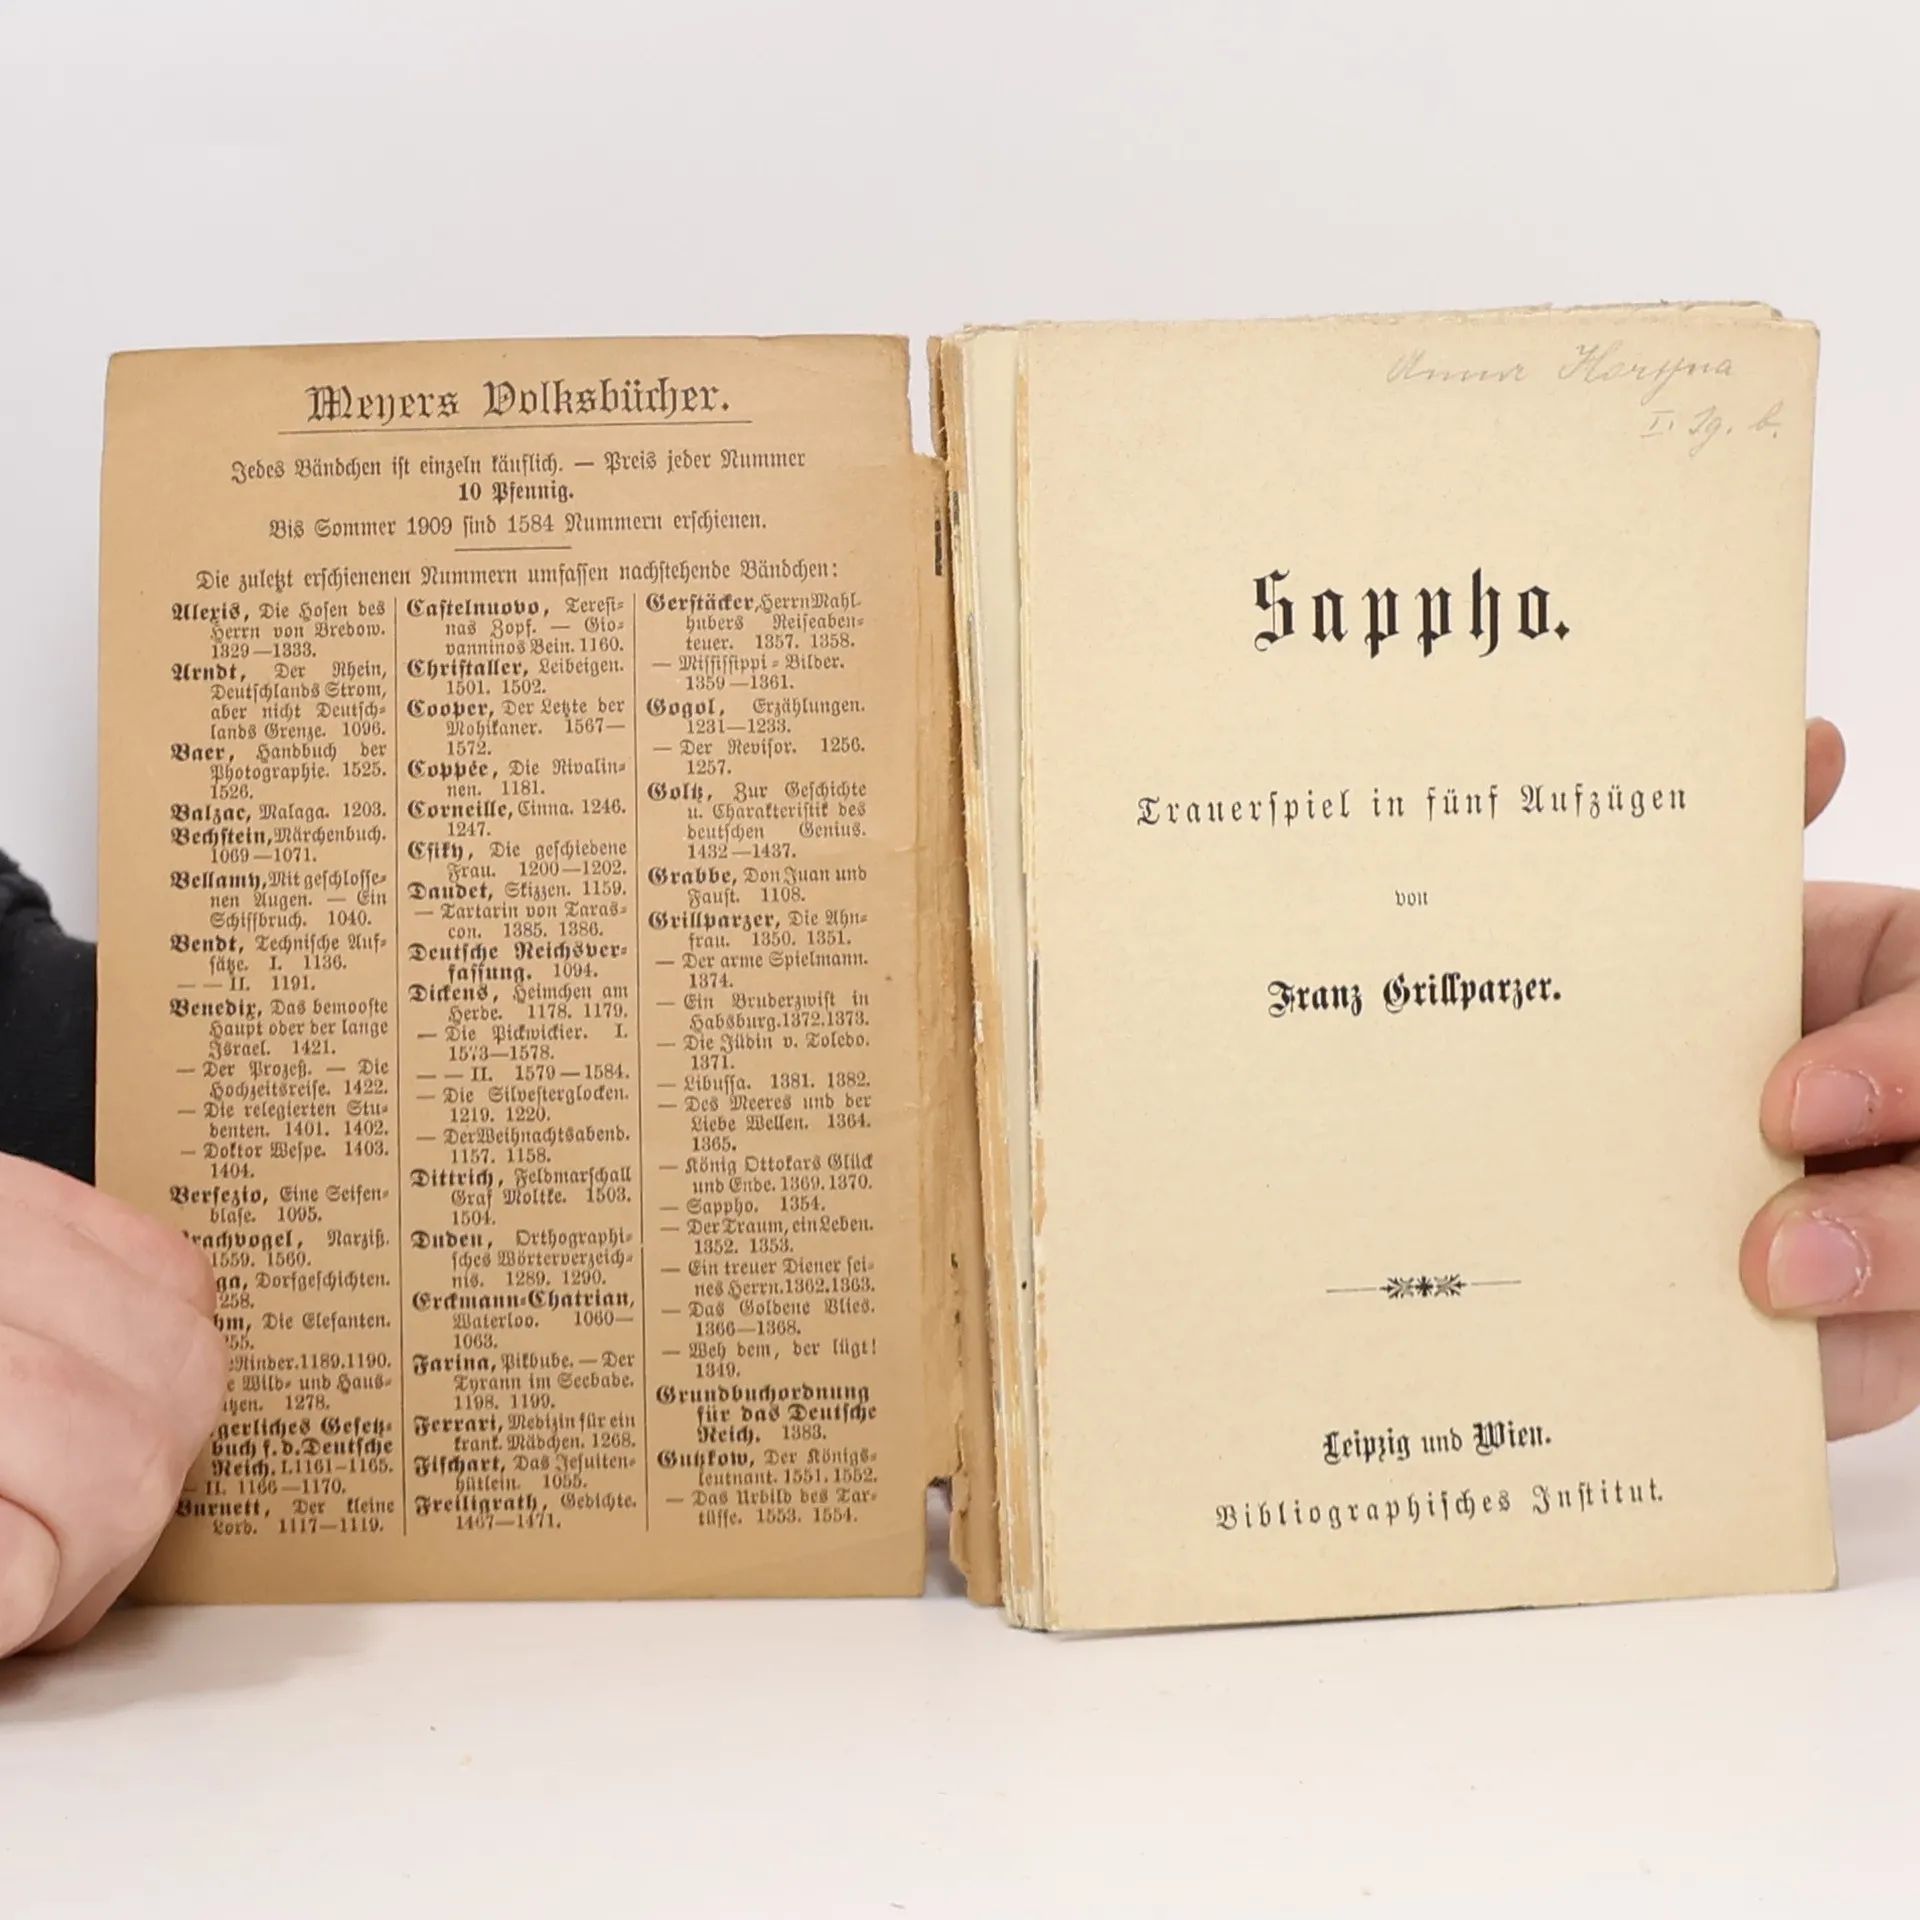 Meyers Volksbücher.
Jedes Bändchen ist einzeln käuflich. — Preis jeder Nummer
10 Pfennig.
Bis Sommer 1909 sind 1584 Nummern erschienen.
Die zuletzt erschienenen Nummern umfassen nachstehende Bändchen:
Alexis, Die Hosen des
Herrn von Bredow.
1329—1333.
Arndt, Der Rhein,
Deutschlands Strom,
aber nicht Deutsch-
lands Grenze. 1096.
Baer, Handbuch der
Photographie. 1525.
1526.
Balzac, Malaga. 1203.
Bechstein, Märchenbuch.
1069—1071.
Bellamy, Mit geschlosse-
nen Augen. — Ein
Schiffbruch. 1040.
Bendt, Technische Auf-
sätze. I. 1136.
— — II. 1191.
Benedix, Das bemooste
Haupt oder der lange
Israel. 1421.
— Der Prozeß. — Die
Hochzeitsreise. 1422.
— Die relegierten Stu-
denten. 1401. 1402.
— Doktor Wespe. 1403.
1404.
Bersezio, Eine Seifen-
blase. 1095.
rachvogel, Narziß.
1559. 1560.
ga, Dorfgeschichten.
258.
hm, Die Elefanten.
55.
Rinder. 1189. 1190.
e Wild- und Haus-
tzen. 1278.
gerliches Gesetz-
buch f. d. Deutsche
Reich. I. 1161—1165.
— II. 1166—1170.
Burnett, Der kleine
Lord. 1117—1119.
Castelnuovo, Teresi-
nas Zopf. — Gio-
vanninos Bein. 1160.
Christaller, Leibeigen.
1501. 1502.
Cooper, Der Letzte der
Mohikaner. 1567—
1572.
Coppée, Die Rivalin-
nen. 1181.
Corneille, Cinna. 1246.
1247.
Csiky, Die geschiedene
Frau. 1200—1202.
Daudet, Skizzen. 1159.
— Tartarin von Taras-
con. 1385. 1386.
Deutsche Reichsver-
fassung. 1094.
Dickens, Heimchen am
Herde. 1178. 1179.
— Die Pickwickier. I.
1573—1578.
— — II. 1579—1584.
— Die Silvesterglocken.
1219. 1220.
— Der Weihnachtsabend.
1157. 1158.
Dittrich, Feldmarschall
Graf Moltke. 1503.
1504.
Duden, Orthographi-
sches Wörterverzeich-
nis. 1289. 1290.
Erckmann-Chatrian,
Waterloo. 1060—
1063.
Farina, Pikbube. — Der
Tyrann im Seebade.
1198. 1199.
Ferrari, Medizin für ein
krank. Mädchen. 1268.
Fischart, Das Jesuiten-
hütlein. 1055.
Freiligrath, Gedichte.
1467—1471.
Gerstäcker, Herrn Mahl-
hubers Reiseaben-
teuer. 1357. 1358.
— Mississippi-Bilder.
1359—1361.
Gogol, Erzählungen.
1231—1233.
— Der Revisor. 1256.
1257.
Goltz, Zur Geschichte
u. Charakteristik des
deutschen Genius.
1432—1437.
Grabbe, Don Juan und
Faust. 1108.
Grillparzer, Die Ahn-
frau. 1350. 1351.
— Der arme Spielmann.
1374.
— Ein Bruderzwist in
Habsburg. 1372. 1373.
— Die Jüdin v. Toledo.
1371.
— Libussa. 1381. 1382.
— Des Meeres und der
Liebe Wellen. 1364.
1365.
— König Ottokars Glück
und Ende. 1369. 1370.
— Sappho. 1354.
— Der Traum, ein Leben.
1352. 1353.
— Ein treuer Diener sei-
nes Herrn. 1362. 1363.
— Das Goldene Vlies.
1366—1368.
— Weh dem, der lügt!
1349.
Grundbuchordnung
für das Deutsche
Reich. 1383.
Gutzkow, Der Königs-
leutnant. 1551. 1552.
— Das Urbild des Tar-
tüffe. 1553. 1554.
Anna
I. Jg. b.
Sappho.
Trauerspiel in fünf Aufzügen
von
Franz Grillparzer.
Leipzig und Wien.
Bibliographisches Institut.